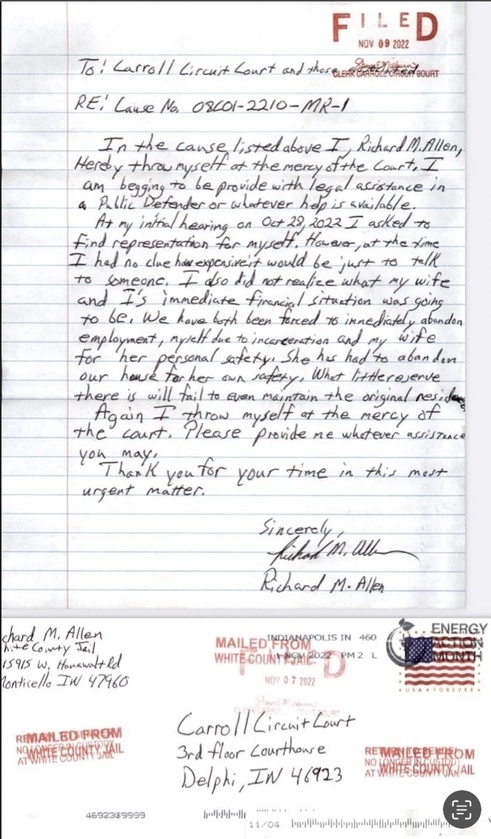 FILED
NOV 09 2022
CLERK CARROLL CIRCUIT COURT
To: Carroll Circuit Court and those
RE: Cause No. 08C01-2210-MR-1
In the cause listed above I, Richard M. Allen,
Hereby throw myself at the mercy of the Court. I
am begging to be provide with legal assistance in
a Public Defender or whatever help is available.
At my initial hearing on Oct 28, 2022 I asked to
find representation for myself. However, at the time
I had no clue how expensive it would be just to talk
to someone. I also did not realize what my wife
and I's immediate financial situation was going
to be. We have both been forced to immediately abandon
employment, myself due to incarceration and my wife
for her personal safety. She has had to abandon
our house for her own safety. What little reserve
there is will fail to even maintain the original
Again I throw myself at the mercy of
the court. Please provide me whatever assistance
you may.
Thank you for your time in this most
urgent matter.
Sincerely,
Richard M. Allen
Richard M. Allen
chard M. Allen
hite County Jail
15915 W. Hanawalt Rd
Monticello IN 47960
INDIANAPOLIS IN 460
NOV 2022 PM 2 L
MAILED FROM
WHITE COUNTY JAIL
NOV 07 2022
ENERGY
ACTION
MONTH
USA FOREVER
Carroll Circuit Court
3rd floor Courthouse
Delphi, IN 46923
MAILED FROM
NO LONGER IN CUSTODY
AT WHITE COUNTY JAIL
MAILED FROM
NO LONGER IN CUSTODY
AT WHITE COUNTY JAIL
11/04